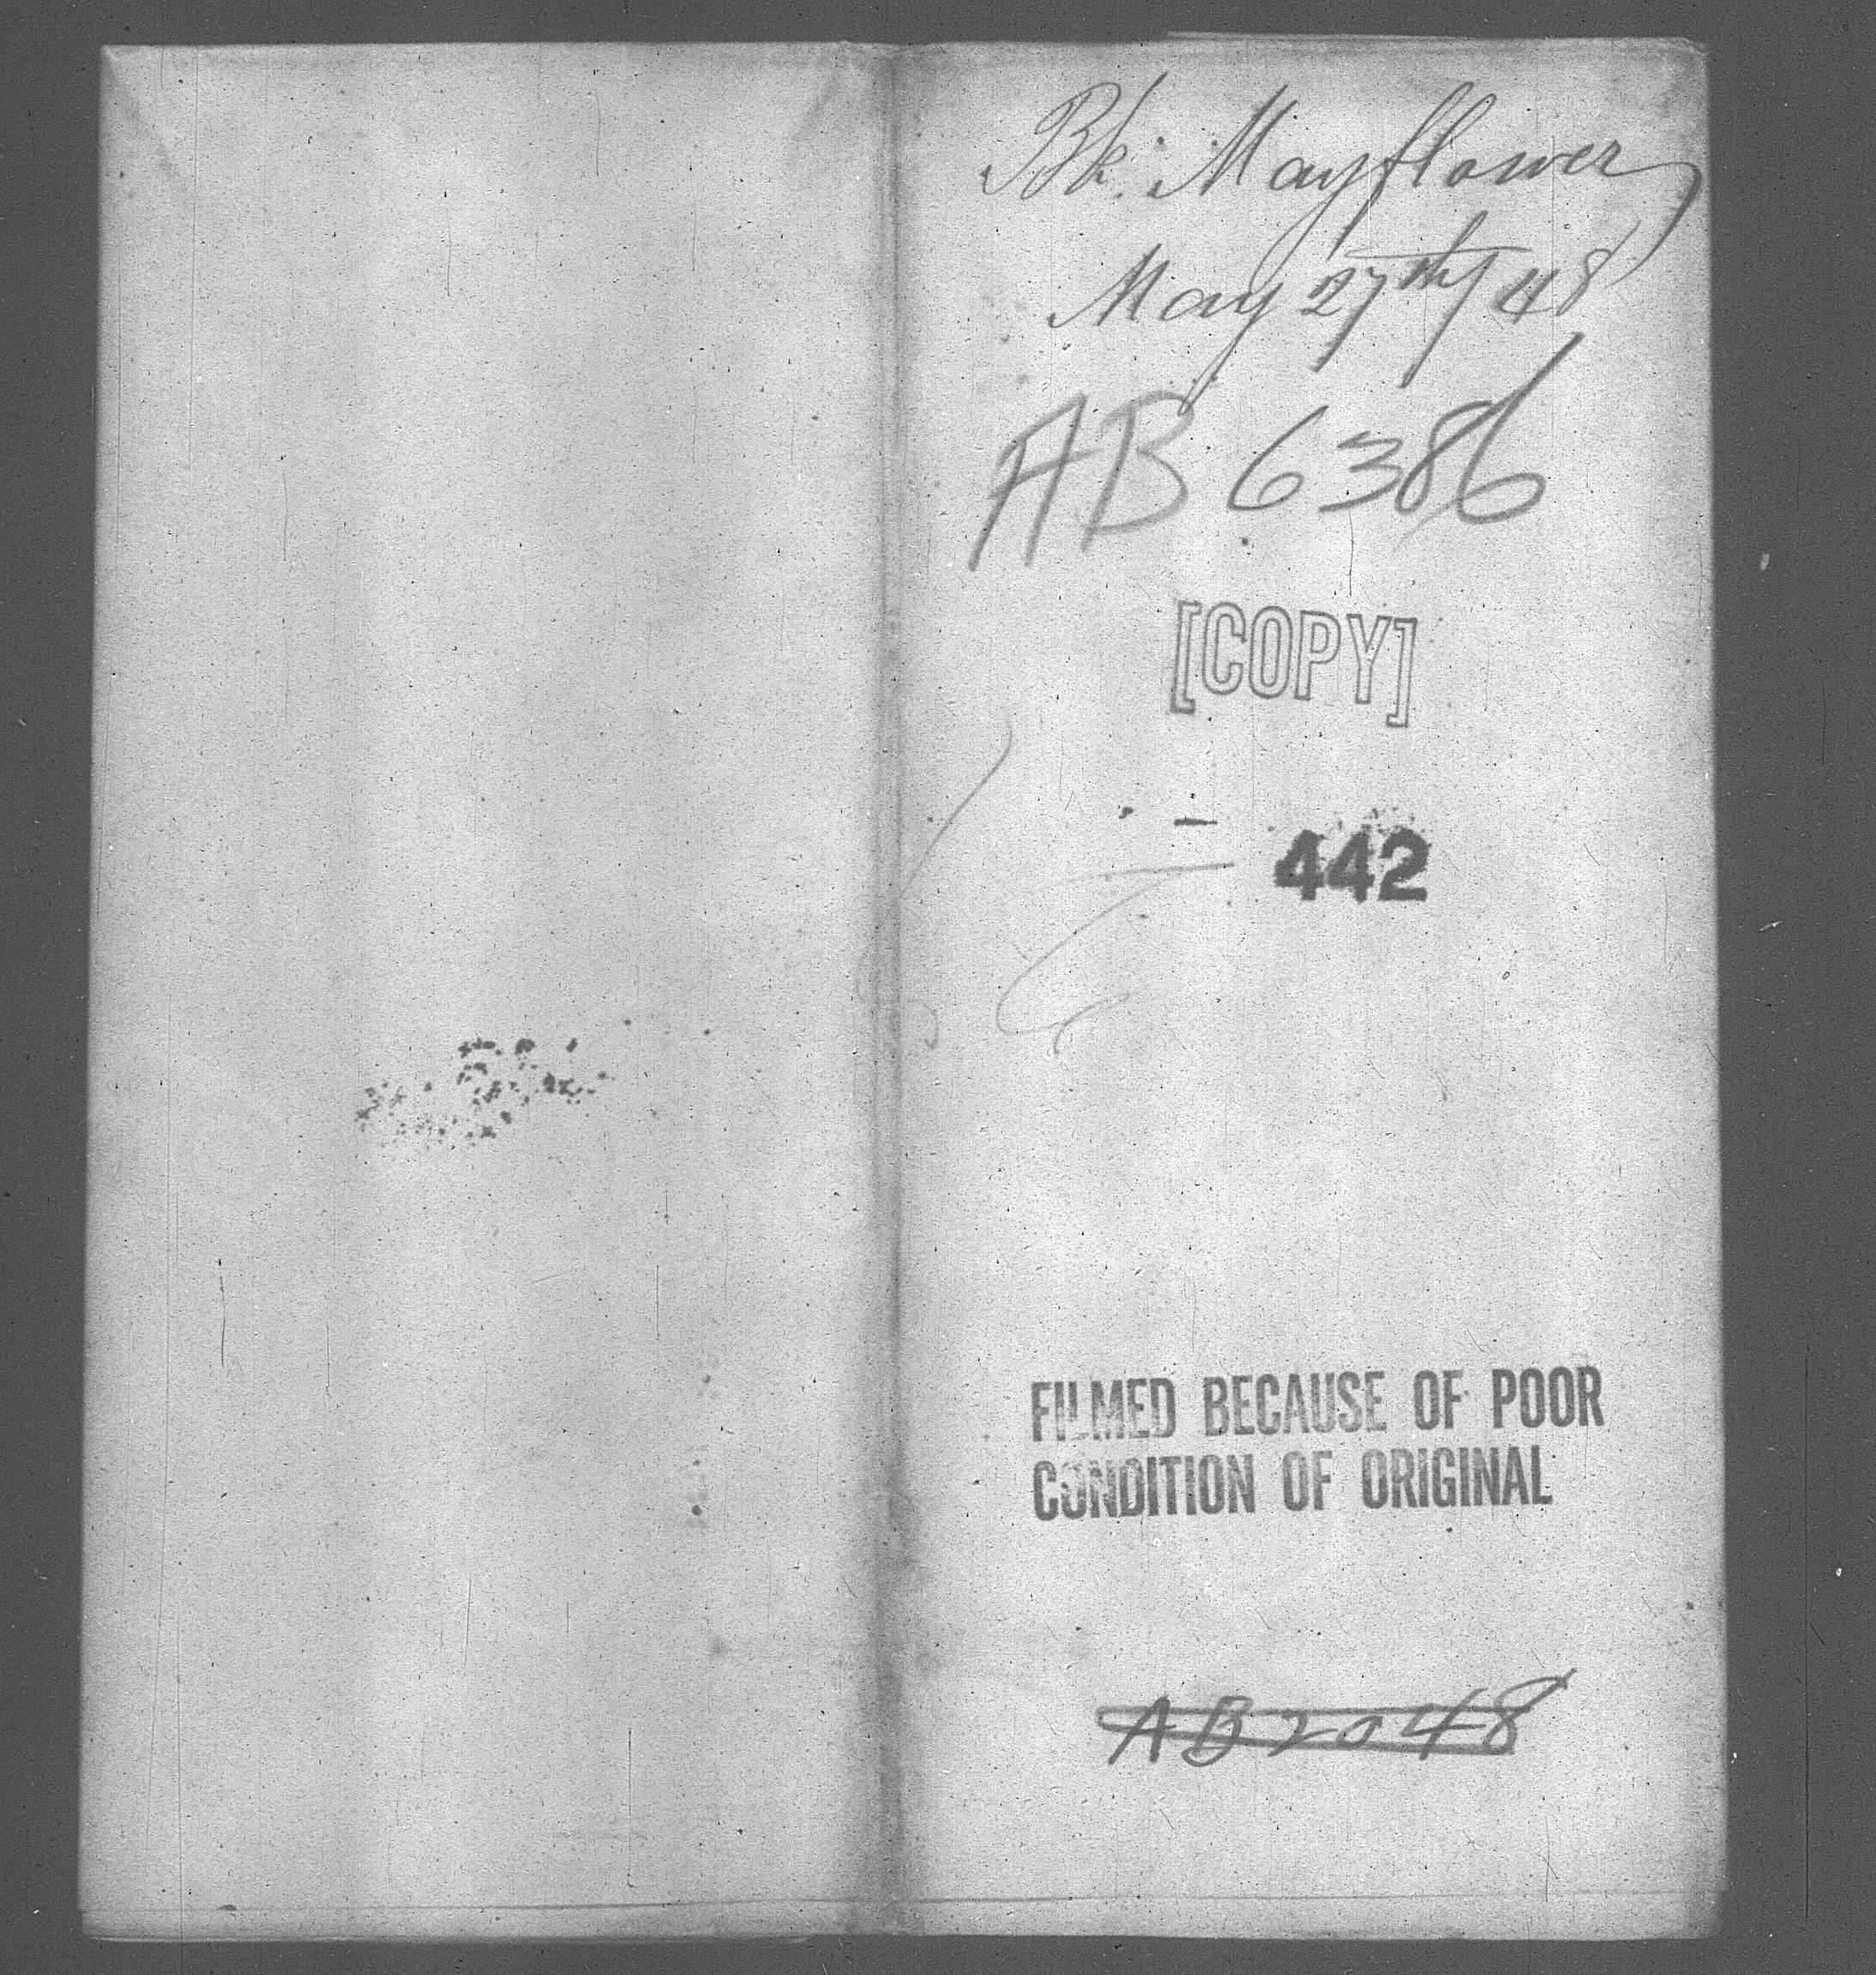 Bk. Mayflower
May 27th 48
AB 6386
[COPY]
442
FILMED BECAUSE OF POOR
CONDITION OF ORIGINAL
AB 2048